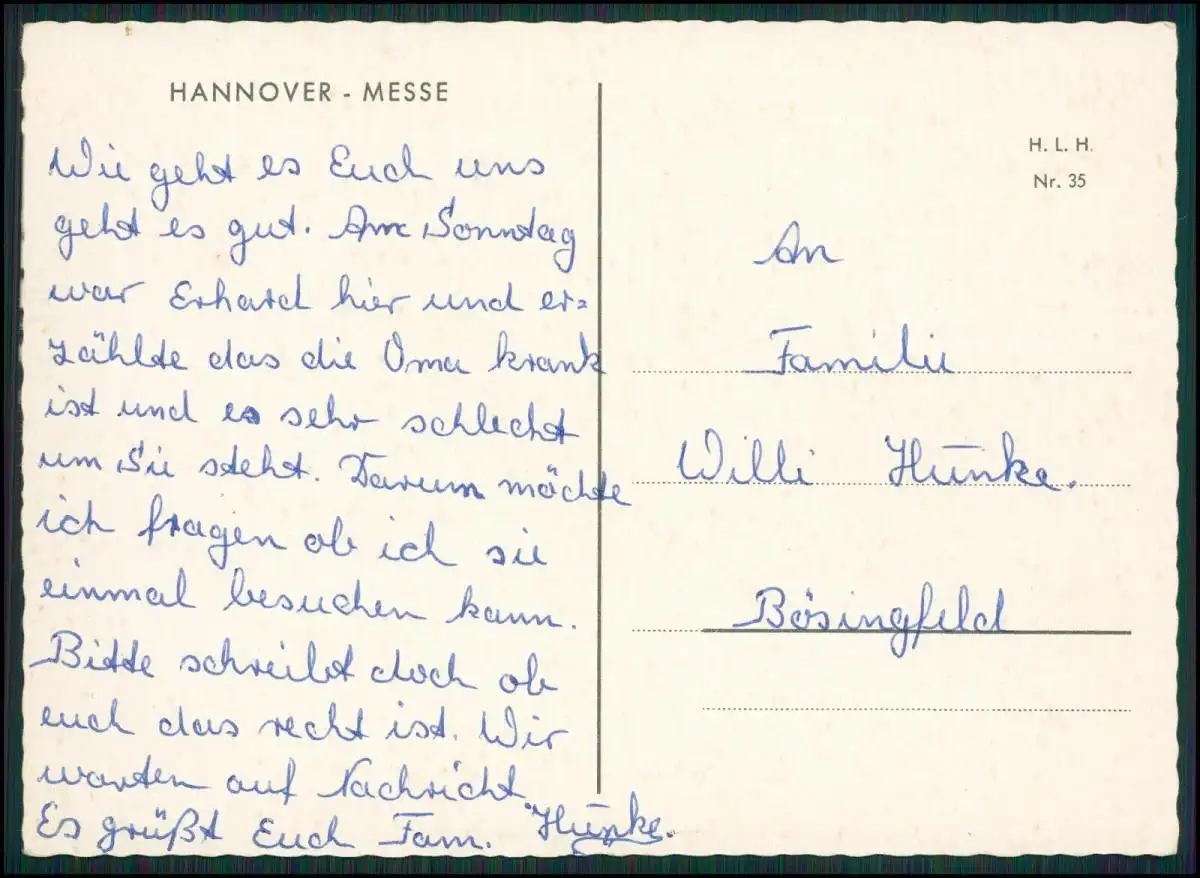 HANNOVER - MESSE
Wie geht es Euch uns
geht es gut. Am Sonntag
war Erhard hier und er=
zählte das die Oma krank
ist und es sehr schlecht
um Sie steht. Darum möchte
ich fragen ob ich sie
einmal besuchen kann.
Bitte schreibt doch ob
euch das recht ist. Wir
warten auf Nachricht.
Es grüßt Euch Fam. Hunke.
H. L. H.
Nr. 35
An
Familie
Willi Hunke.
Bösingfeld